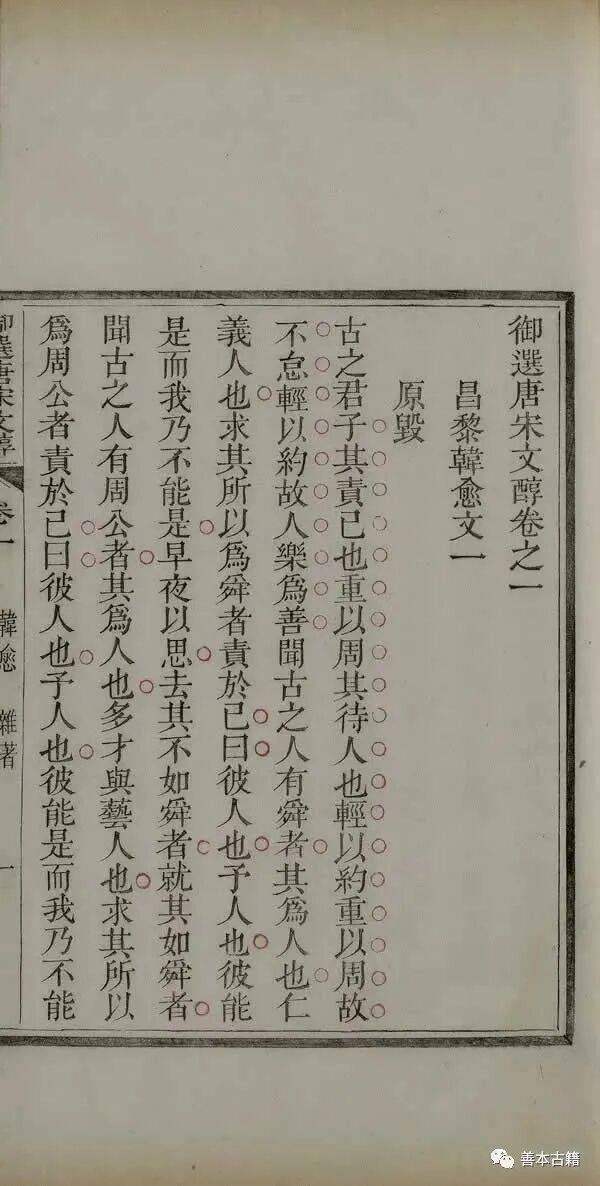 御選唐宋文醇卷之一
昌黎韓愈文一
原毀
古之君子其責已也重以周其待人也輕以約重以周故
不怠輕以約故人樂為善聞古之人有舜者其為人也仁
義人也求其所以為舜者責於已曰彼人也予人也彼能
是而我乃不能是早夜以思去其不如舜者就其如舜者
聞古之人有周公者其為人也多才與藝人也求其所以
為周公者責於已曰彼人也予人也彼能是而我乃不能
御選唐宋文醇 卷一 韓愈 雜著 一
善本古籍